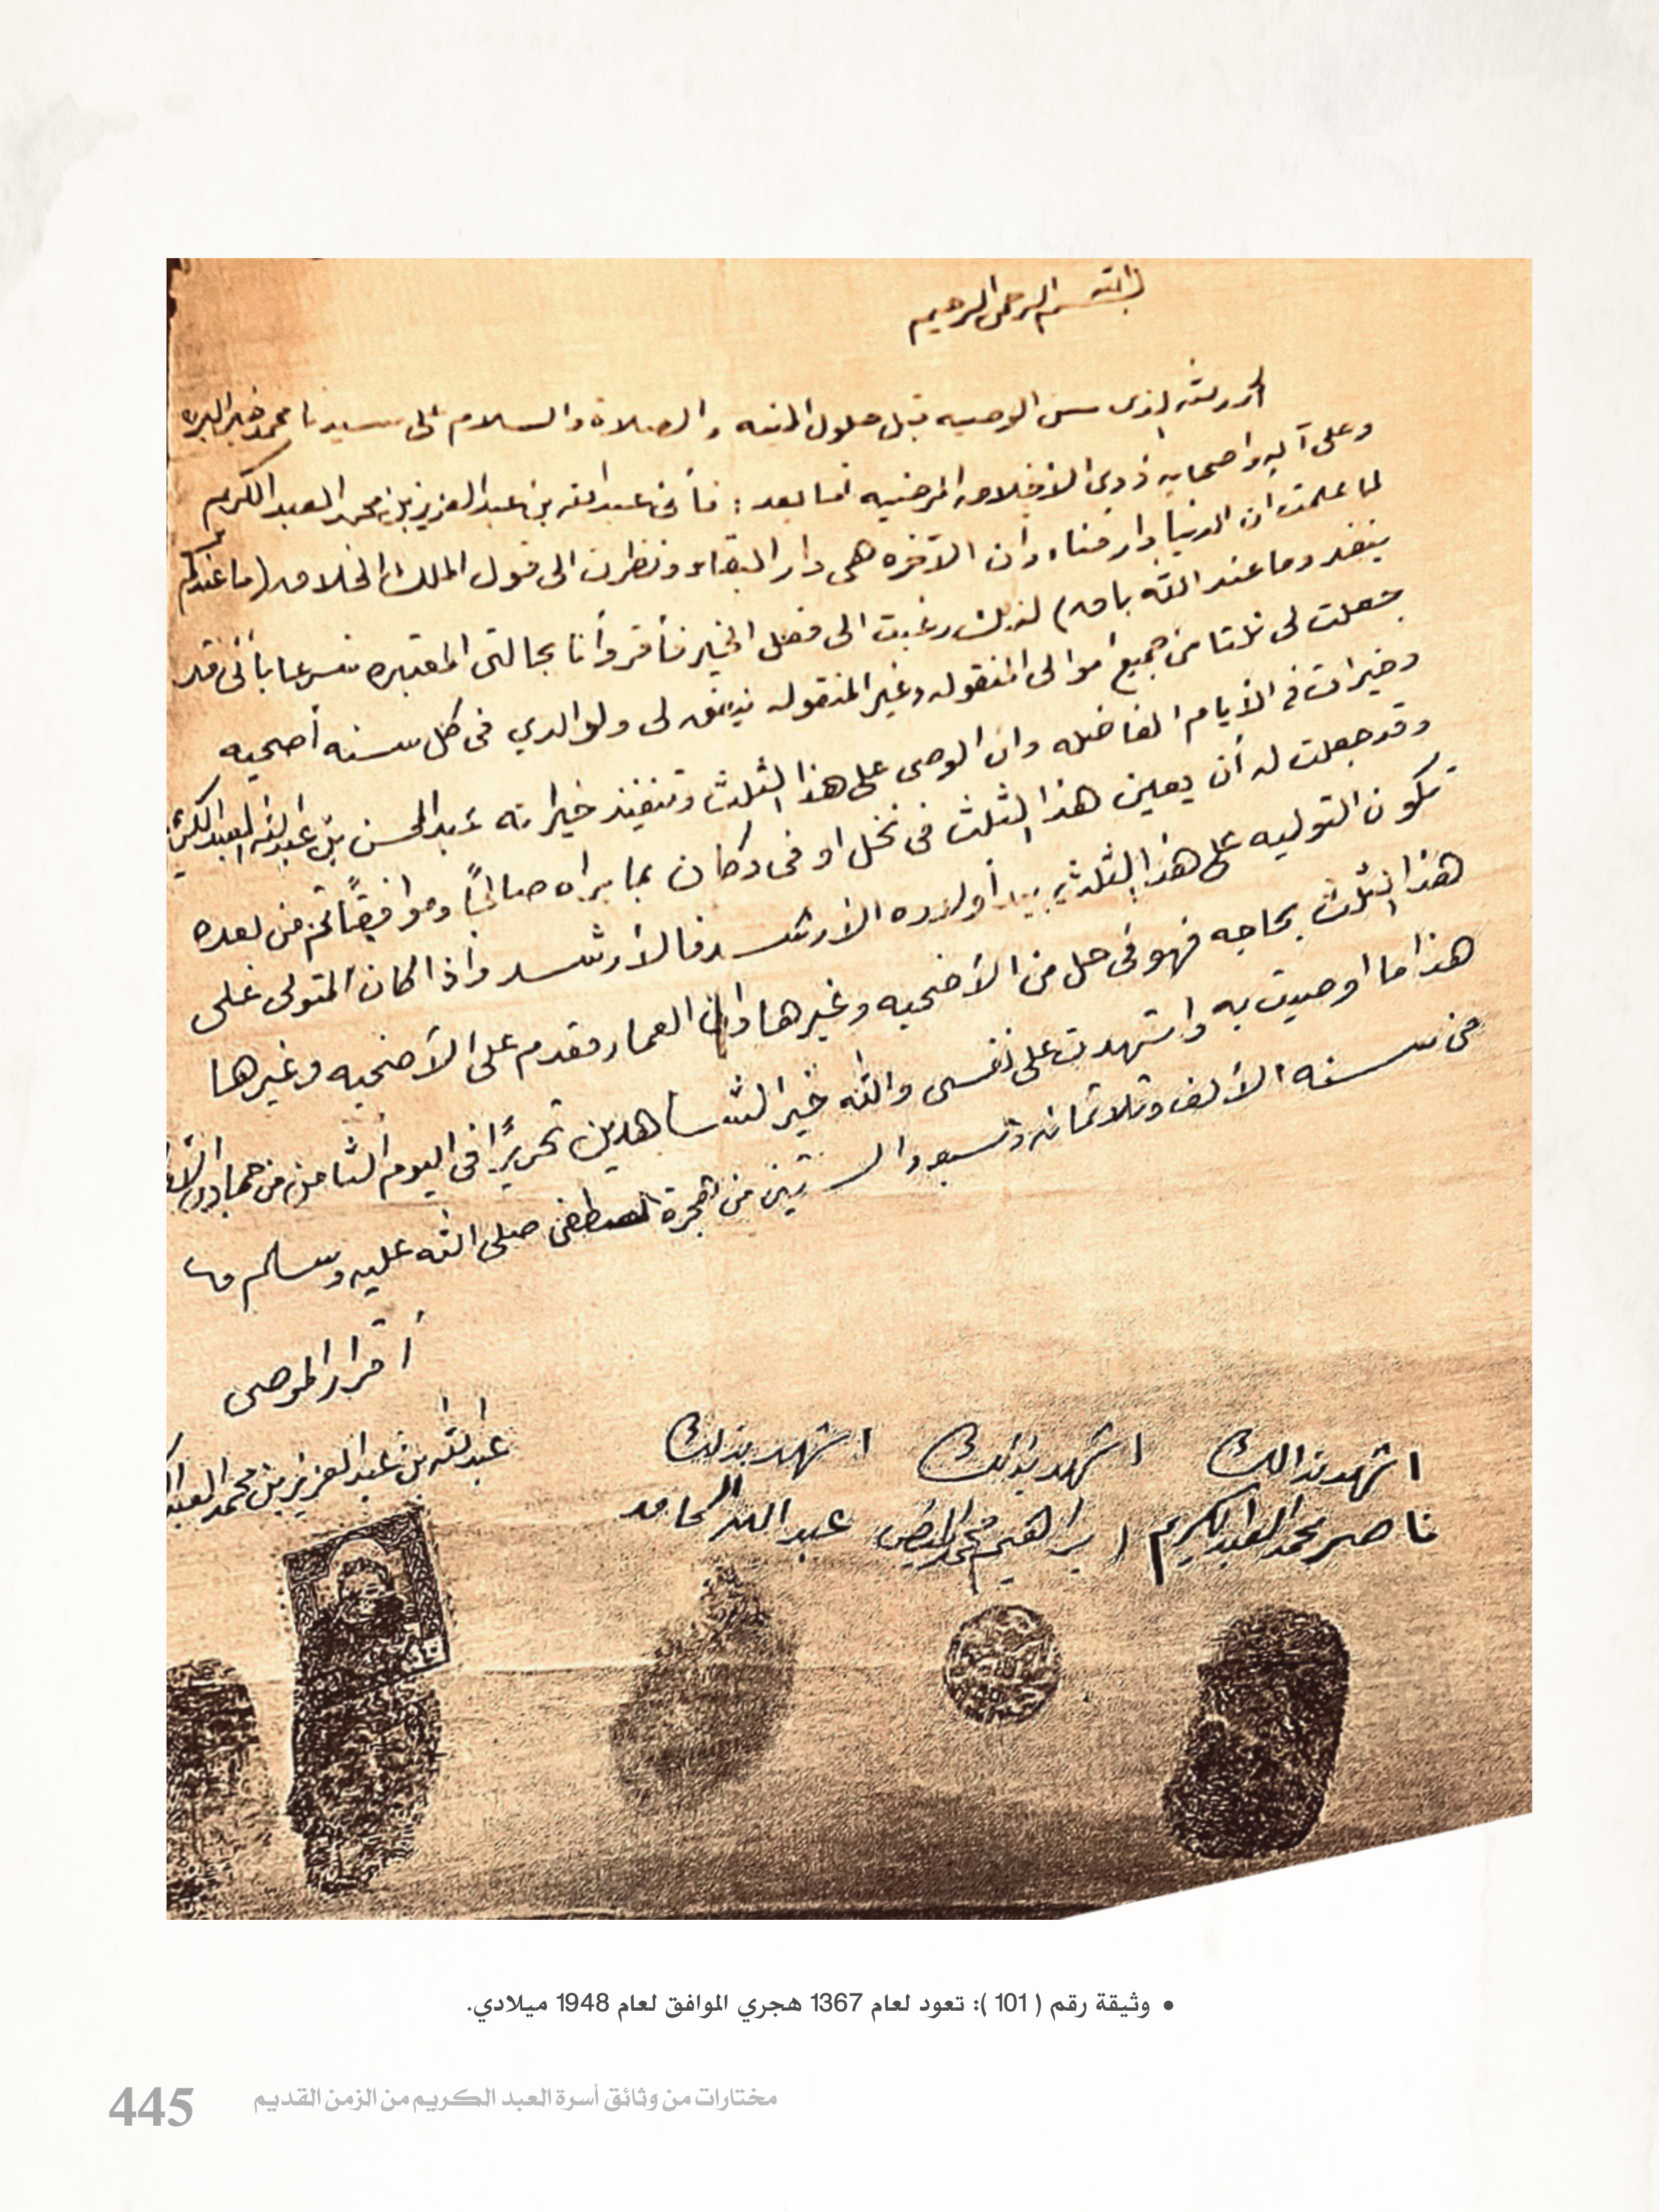 بسم الله الرحمن الرحيم
الحمد لله الذى سن الوصيه قبل حلول المنيه والصلاة والسلام على سيدنا محمد خير البريه
وعلى آله واصحابه ذوى الاخلاق المرضيه أما بعد : فأنى عبد الله بن عبد العزيز بن محمد العبد الكريم
لما علمت ان الدنيا دار فناء وأن الآخره هى دار البقاء ونظرت الى قول الملك الخلاق (ما عندكم
ينفد وما عند الله باق) لذلك رغبت الى فعل الخير فأقر وأنا بحالتى المعتبره شرعا بأنى قد
جعلت لى ثلثا من جميع أموالى المنقوله وغير المنقوله ينفق لى ولوالدي فى كل سنه أضحيه
وخيرات فى الأيام الفاضله وان الوصى على هذا الثلث وتنفيذ خيراته عبد المحسن بن عبد الله العبد الكريم
وقد جعلت له أن يعين هذا الثلث فى نخل او فى دكان بما يراه صالحاً وموافقاً ثم من بعده
تكون التوليه على هذا الثلث بيد أولاده الارشد فالأرشد واذا كان المتولى على
هذا الثلث بحاجه فهو فى حل من الأضحيه وغيرها وان العمار مقدم على الأضحيه وغيرها
هذا ما اوصيت به واشهدت على نفسى والله خير الشاهدين تحريرًا فى اليوم الثامن من جمادى
من سنه الألف وثلاثمائه وسبع والستين من هجرة المصطفى صلى الله عليه وسلم
أقرار الموصى
عبد الله بن عبد العزيز بن محمد العبد
اشهد بذالك اشهد بذلك اشهد بذلك
ناصر محمد العبد الكريم ابراهيم محمد عبد الله الحامد
• وثيقة رقم ( 101 ): تعود لعام 1367 هجري الموافق لعام 1948 ميلادي.
مختارات من وثائق أسرة العبد الكريم من الزمن القديم
445